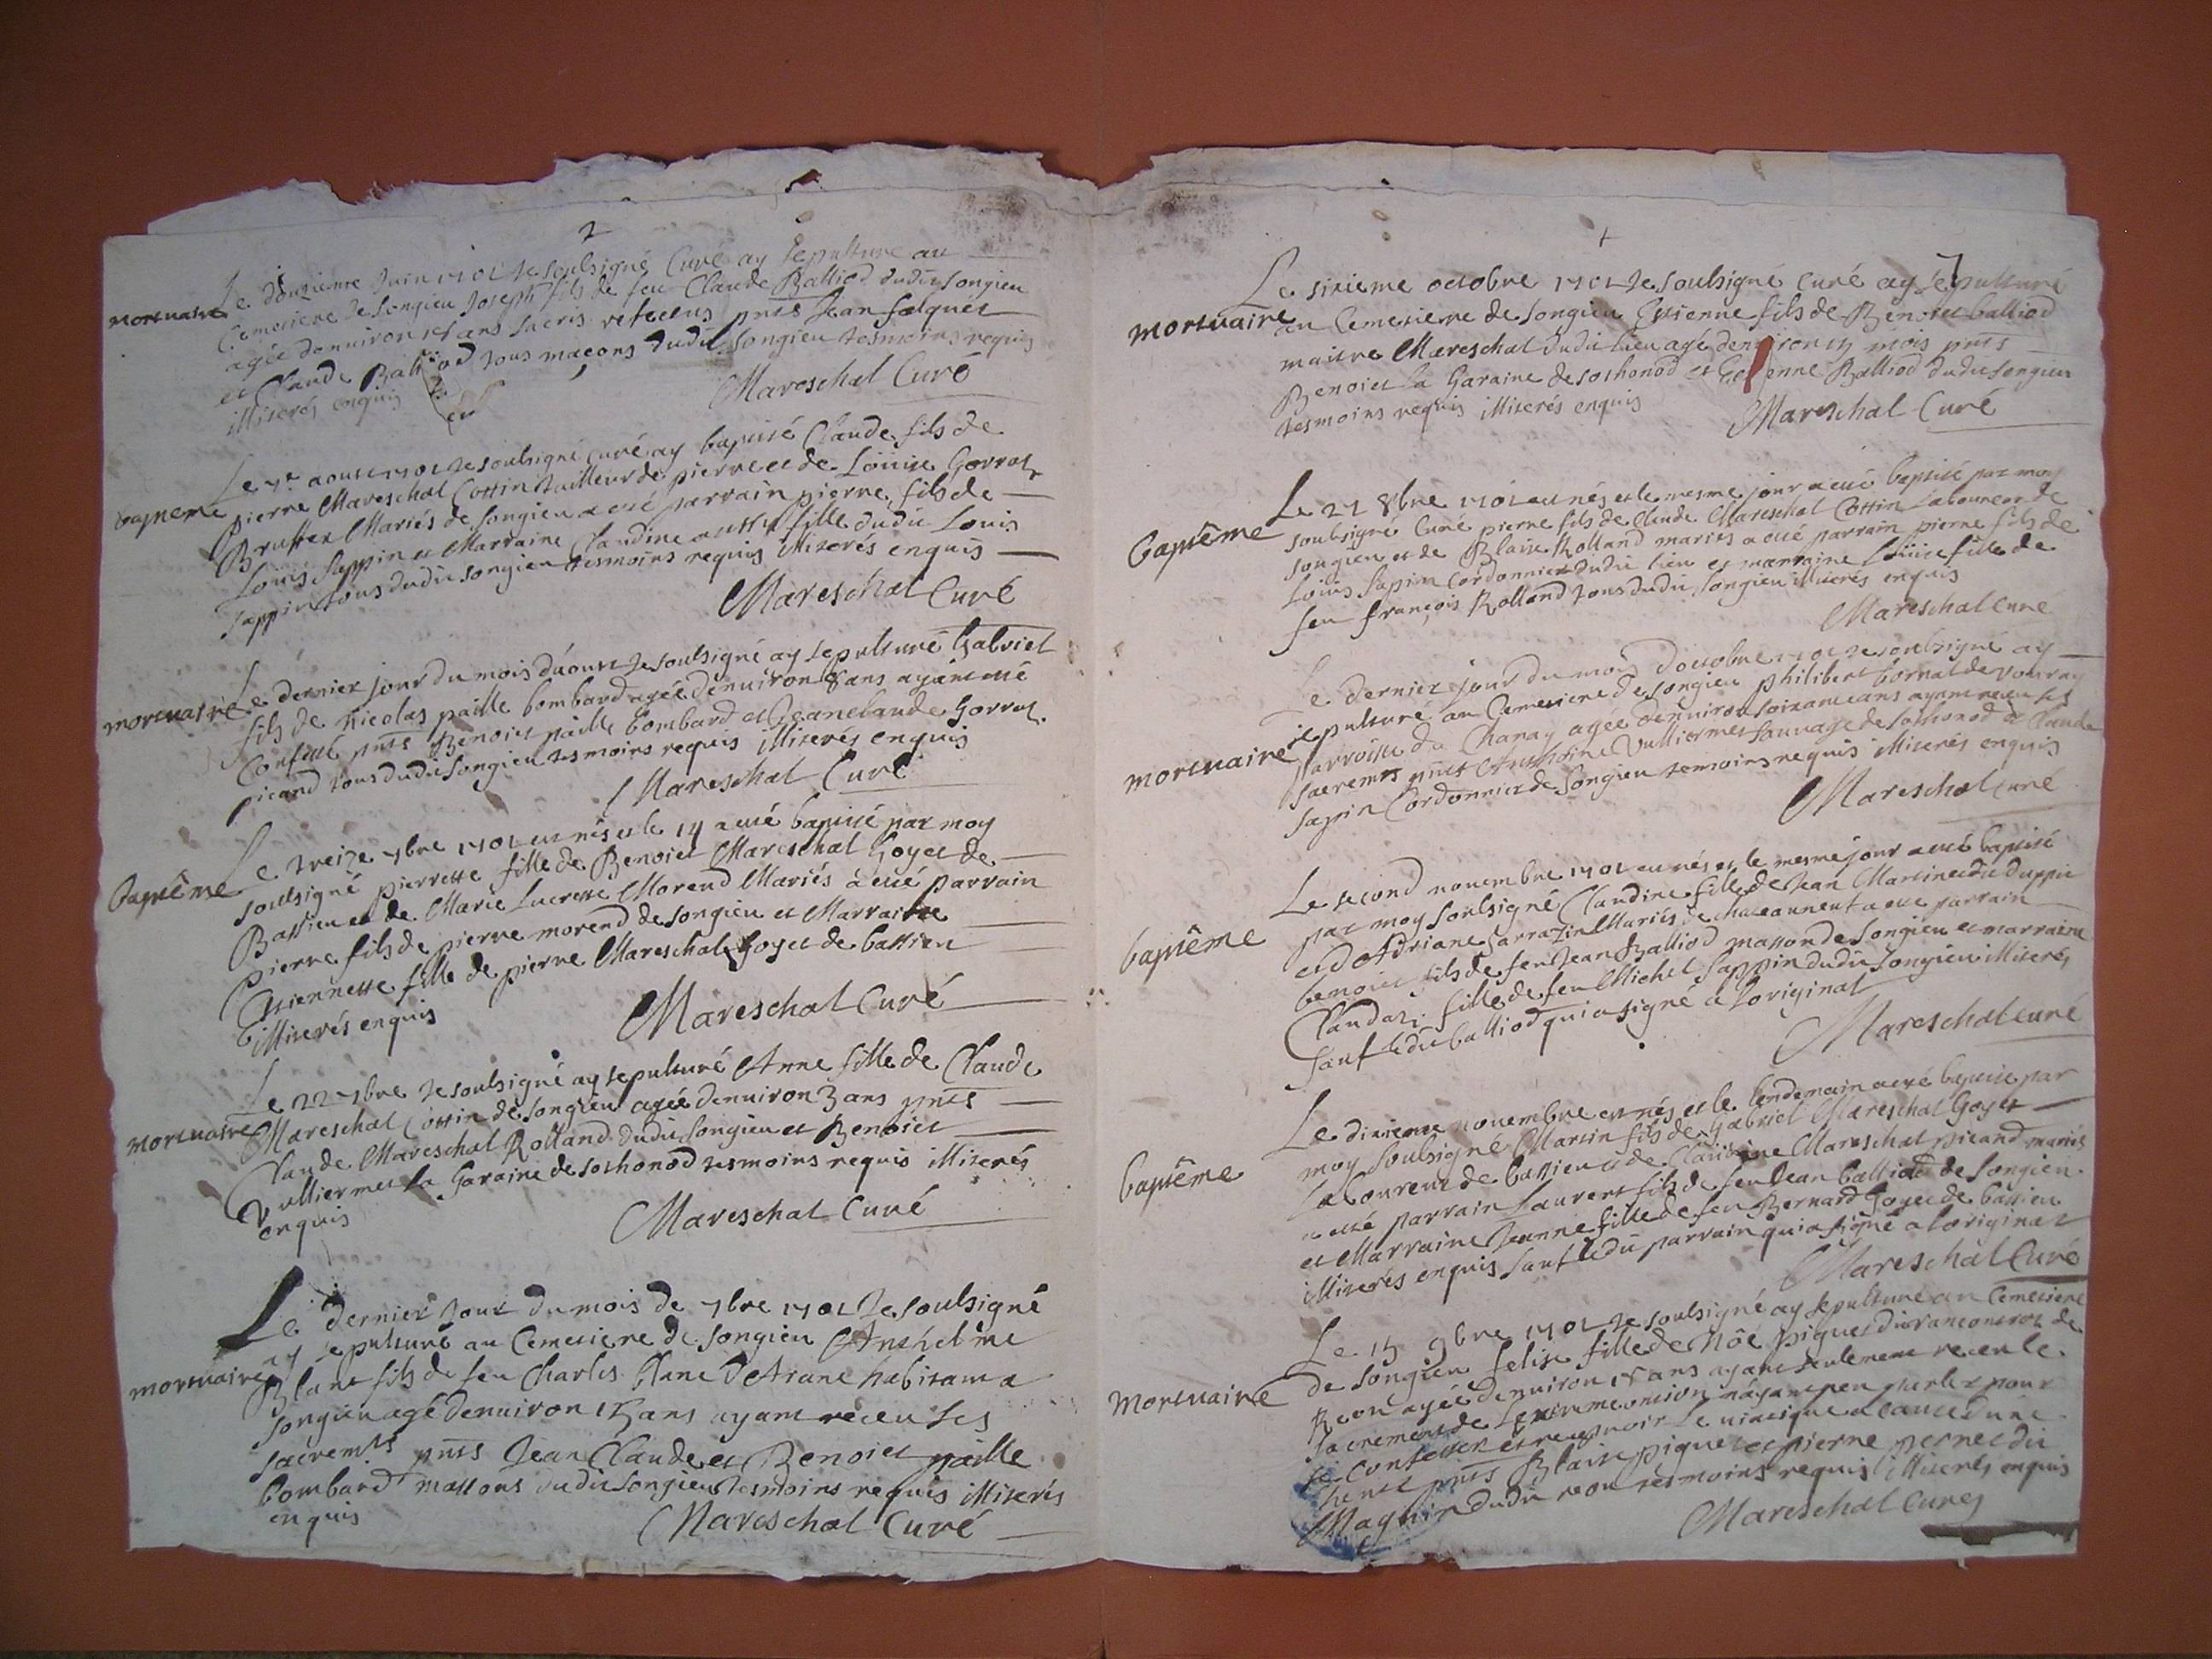 2
mortuaire
Le douzieme Juin 1701 Je soulsigné Curé ay sepulturé au
Cemetiere de songieu Joseph fils de feu Claude Balliod dudit songieu
agée denuiron ans pnts Jean falquet
et Claude Balliod tous maçons dudit songieu tesmoins requis
illiterés enquis
Mareschal Curé
bapteme
Le 7e aoust 1701 Je soulsigné curé ay baptisé Claude fils de
pierre Mareschal Cottin tailleur de pierre et de Loüise Gorrat
Brusset Mariés de songieu a esté parrain pierre fils de
Louis Sappin et Marraine Claudine aussy fille dudit Louis
Sappin tous dudit songieu tesmoins requis illiterés enquis
Mareschal Curé
mortuaire
Le dernier jour du mois d'aoust Je soulsigné ay sepulturé Gabriel
fils de Nicolas paille bombard agée denuiron 8 ans ayant esté
Confess pnts Benoict paille bombard et Jeanclaude Gorrat
picand tous dudit songieu tesmoins requis illiterés enquis
Mareschal Curé
Baptême
Le treize 7bre 1701 est nés et le 14 a esté baptisé par moy
soulsigné pierrette fille de Benoict Mareschal Goyet de
Bassieu et de Marie Lucresse Morend Mariés a esté parrain
Pierre fils de pierre morend de songieu et Marraine
Estiennette fille de pierre Mareschal Goyet de bassieu
illiterés enquis
Mareschal Curé
mortuaire
Le 22 7bre Je soulsigné ay sepulturé Anne fille de Claude
Mareschal Cottin de songieu agée denuiron 3 ans pnts
Claude Mareschal Rolland dudit songieu et Benoict
Vulliermet la Garaine de sothonod tesmoins requis illiterés
enquis
Mareschal Curé
mortuaire
Le dernier Jour du mois de 7bre 1701 Je soulsigné
ay sepulturé au Cemetiere de songieu Anthelme
Blanc fils de feu Charles Blanc habitant a
songieu agé denuiron 15 ans ayant receu ses
sacremts pnts Jean Claude et Benoict paille
bombard massons dudit songieu tesmoins requis illiterés
enquis
Mareschal Curé
7
mortuaire
Le sixieme octobre 1701 Je soulsigné curé ay sepulturé
au Cemetiere de songieu Estienne fils de Benoict balliod
maitre Mareschal dudit lieu agé denuiron mois pnts
Benoict la Garaine de sothonod et Estienne Balliod dudit songieu
tesmoins requis illiterés enquis
Mareschal Curé
baptême
Le 21 8bre 1701 est nés et le mesme jour a esté baptisé par moy
soulsigné Curé pierre fils de Claude Mareschal Cottin laboureur de
songieu et de Blaise Rolland mariés a esté parrain pierre fils de
Louis Sappin Cordonnier dudit lieu et marraine Loüise fille de
feu françois Rolland tous dudit songieu illiterés enquis
Mareschal Curé
mortuaire
Le dernier jour du mois d'octobre 1701 Je soulsigné ay
sepulturé au Cemetiere de songieu philibert bornat de vouvray
parroisse de Chanay agée denuiron soixante ans ayant receu ses
sacremts pnts Anthoine Vulliermet sauuage de sothonod et Claude
Sapin Cordonnier de songieu temoins requis illiterés enquis
Mareschal Curé
baptême
Le second nouembre 1701 est nés et le mesme jour a esté baptisé
par moy soulsigné Claudine fille de Jean Martinet
et d'Adriane Sarrazin Mariés de chateauneuf a esté parrain
benoict fils de feu Jean Balliod masson de songieu et marraine
Claudaz fille de feu Michel Sappin dudit songieu illiterés
sauf ledit balliod qui a signé a l'original
Mareschal curé
baptême
Le dixieme nouembre est nés et le lendemain a esté baptisé par
moy soulsigné Martin fils de Gabriel Mareschal Goyet
laboureur de bassieu et de Claudine Mareschal picand mariés
a esté parrain Laurent fils de feu Jean balliod de songieu
et Marraine Jeanne fille de feu Bernard Goyet de bassieu
illiterés enquis sauf ledit parrain qui a signé a loriginal
Mareschal Curé
Mortuaire
Le 15 9bre 1701 Je soulsigné ay sepulturé au Cemetiere
de songieu felise fille de Nôé piquet de
Reon agée denuiron ans ayant seulement receu le
sacrement de Lextreme onction nayant peu parler pour
se confesser et receuoir le viatique a cause d'une
pnts Blaise piquet et pierre pernet dit
Magnin dudit reon tesmoins requis illiterés enquis
Mareschal Curé